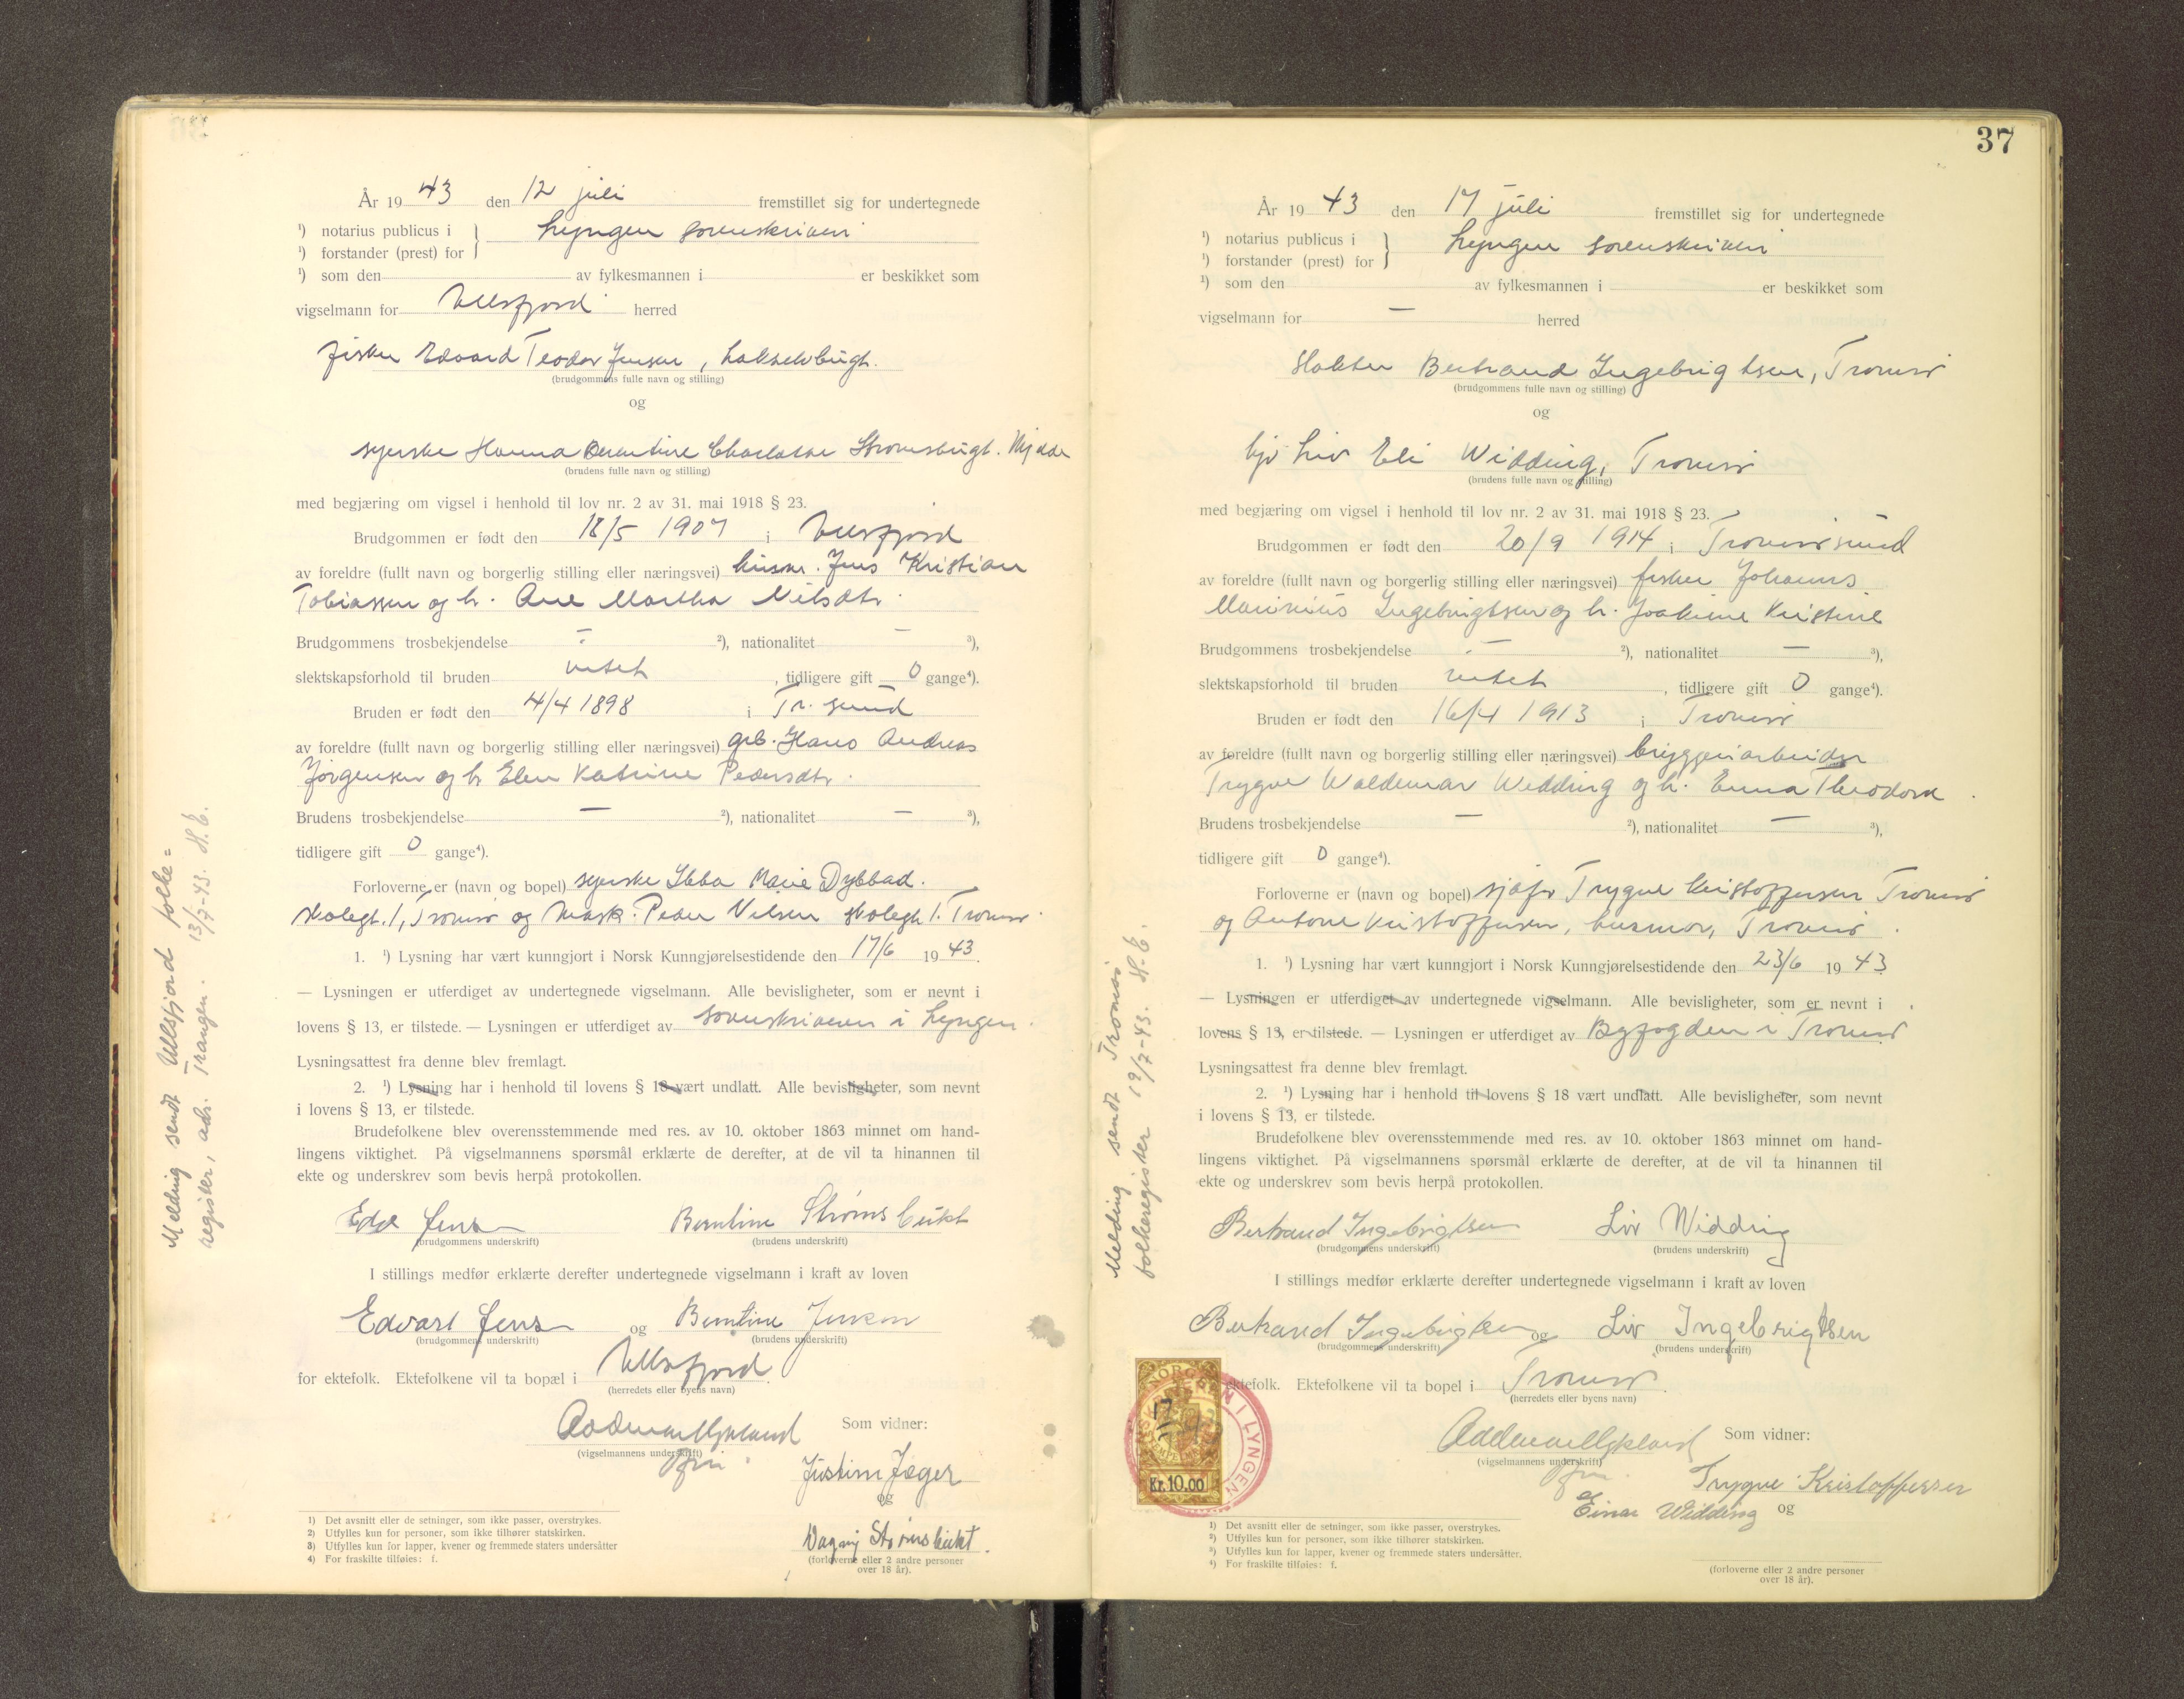 År 19 43 den 12 juli fremstillet sig for undertegnede
¹) notarius publicus i
¹) forstander (prest) for } Lyngen sorenskriveri
¹) som den av fylkesmannen i er beskikket som
vigselmann for Ullsfjord herred
fisker Edvard Teodor Jensen, Lakselvbugt.
(brudgommens fulle navn og stilling)
og
syerske Hanna Berntine Charlotte Strømsbugt.
(brudens fulle navn og stilling)
med begjæring om vigsel i henhold til lov nr. 2 av 31. mai 1918 § 23.
Brudgommen er født den 18/5 1907 i Ullsfjord
av foreldre (fullt navn og borgerlig stilling eller næringsvei) Jens Kristian
Tobiassen og h. Ane Martha Nilsdtr.
Brudgommens trosbekjendelse — ²), nationalitet — ³),
slektskapsforhold til bruden intet, tidligere gift 0 gange⁴).
Bruden er født den 4/4 1898 i Tr. sund
av foreldre (fullt navn og borgerlig stilling eller næringsvei) grb. Hans Andreas
Jørgensen og h. Elen Katrine Pedersdtr.
Brudens trosbekjendelse — ²), nationalitet — ³),
tidligere gift 0 gange⁴).
Forloverne er (navn og bopel) syerske Ebba Marie Dybbad.
Skolegt. 1, Tromsø og mask. Peder Nilsen Skolegt 1. Tromsø.
1. ¹) Lysning har vært kunngjort i Norsk Kunngjørelsestidende den 17/6 19 43.
— Lysningen er utferdiget av undertegnede vigselmann. Alle bevisligheter, som er nevnt i
lovens § 13, er tilstede. — Lysningen er utferdiget av sorenskriveren i Lyngen.
Lysningsattest fra denne blev fremlagt.
2. ¹) Lysning har i henhold til lovens § 18 vært undlatt. Alle bevisligheter, som nevnt
i lovens § 13, er tilstede.
Brudefolkene blev overensstemmende med res. av 10. oktober 1863 minnet om hand-
lingens viktighet. På vigselmannens spørsmål erklærte de derefter, at de vil ta hinannen til
ekte og underskrev som bevis herpå protokollen.
Edv Jensen Berntine Strømsbukt
(brudgommens underskrift) (brudens underskrift)
I stillings medfør erklærte derefter undertegnede vigselmann i kraft av loven
Edvart Jensen og Berntine Jensen
(brudgommens underskrift) (brudens underskrift)
for ektefolk. Ektefolkene vil ta bopæl i Ullsfjord
(herredets eller byens navn)
Som vidner:
(vigselmannens underskrift)
Justine Jæger
og
Dagny Strømsbukt.
(forloverne eller 2 andre personer
over 18 år).
1) Det avsnitt eller de setninger, som ikke passer, overstrykes.
2) Utfylles kun for personer, som ikke tilhører statskirken.
3) Utfylles kun for lapper, kvener og fremmede staters undersåtter
4) For fraskilte tilføies: f.
Melding sendt Ullsfjord folke=
register, adr. Trangen. 13/7-43. H.E.
37
År 19 43 den 17 juli fremstillet sig for undertegnede
¹) notarius publicus i
¹) forstander (prest) for } Lyngen sorenskriveri
¹) som den av fylkesmannen i er beskikket som
vigselmann for — herred
Slakter Bertrand Ingebrigtsen, Tromsø
(brudgommens fulle navn og stilling)
og
Liv Eli Widding, Tromsø
(brudens fulle navn og stilling)
med begjæring om vigsel i henhold til lov nr. 2 av 31. mai 1918 § 23.
Brudgommen er født den 20/9 1914 i Tromsøsund
av foreldre (fullt navn og borgerlig stilling eller næringsvei) fisker Johannes
Marinius Ingebrigtsen og h. Joakime Kristine
Brudgommens trosbekjendelse — ²), nationalitet — ³),
slektskapsforhold til bruden intet, tidligere gift 0 gange⁴).
Bruden er født den 16/4 1913 i Tromsø
av foreldre (fullt navn og borgerlig stilling eller næringsvei) bryggeriarbeider
Trygve Waldemar Widding og h. Emma Theodora.
Brudens trosbekjendelse — ²), nationalitet — ³),
tidligere gift 0 gange⁴).
Forloverne er (navn og bopel) sjåfø Trygve Kristoffersen Tromsø
og Antone Kristoffersen, husmor, Tromsø.
1. ¹) Lysning har vært kunngjort i Norsk Kunngjørelsestidende den 23/6 19 43
— Lysningen er utferdiget av undertegnede vigselmann. Alle bevisligheter, som er nevnt i
lovens § 13, er tilstede. — Lysningen er utferdiget av Byfogden i Tromsø
Lysningsattest fra denne blev fremlagt.
2. ¹) Lysning har i henhold til lovens § 18 vært undlatt. Alle bevisligheter, som nevnt
i lovens § 13, er tilstede.
Brudefolkene blev overensstemmende med res. av 10. oktober 1863 minnet om hand-
lingens viktighet. På vigselmannens spørsmål erklærte de derefter, at de vil ta hinannen til
ekte og underskrev som bevis herpå protokollen.
Bertrand Ingebrigtsen Liv Widding
(brudgommens underskrift) (brudens underskrift)
I stillings medfør erklærte derefter undertegnede vigselmann i kraft av loven
Bertrand Ingebrigtsen og Liv Ingebrigtsen
(brudgommens underskrift) (brudens underskrift)
ektefolk. Ektefolkene vil ta bopel i Tromsø.
(herredets eller byens navn)
Som vidner:
(vigselmannens underskrift)
Trygve Kristoffersen
og
Einar Widding
(forloverne eller 2 andre personer
over 18 år).
NORGE
Kr. 10.00
I LYNGEN
¹) Det avsnitt eller de setninger, som ikke passer, overstrykes.
²) Utfylles kun for personer, som ikke tilhører statskirken.
³) Utfylles kun for lapper, kvener og fremmede staters undersåtter.
⁴) For fraskilte tilføies: f.
Melding sendt Tromsø
folkeregister 19/7-43. H.E.